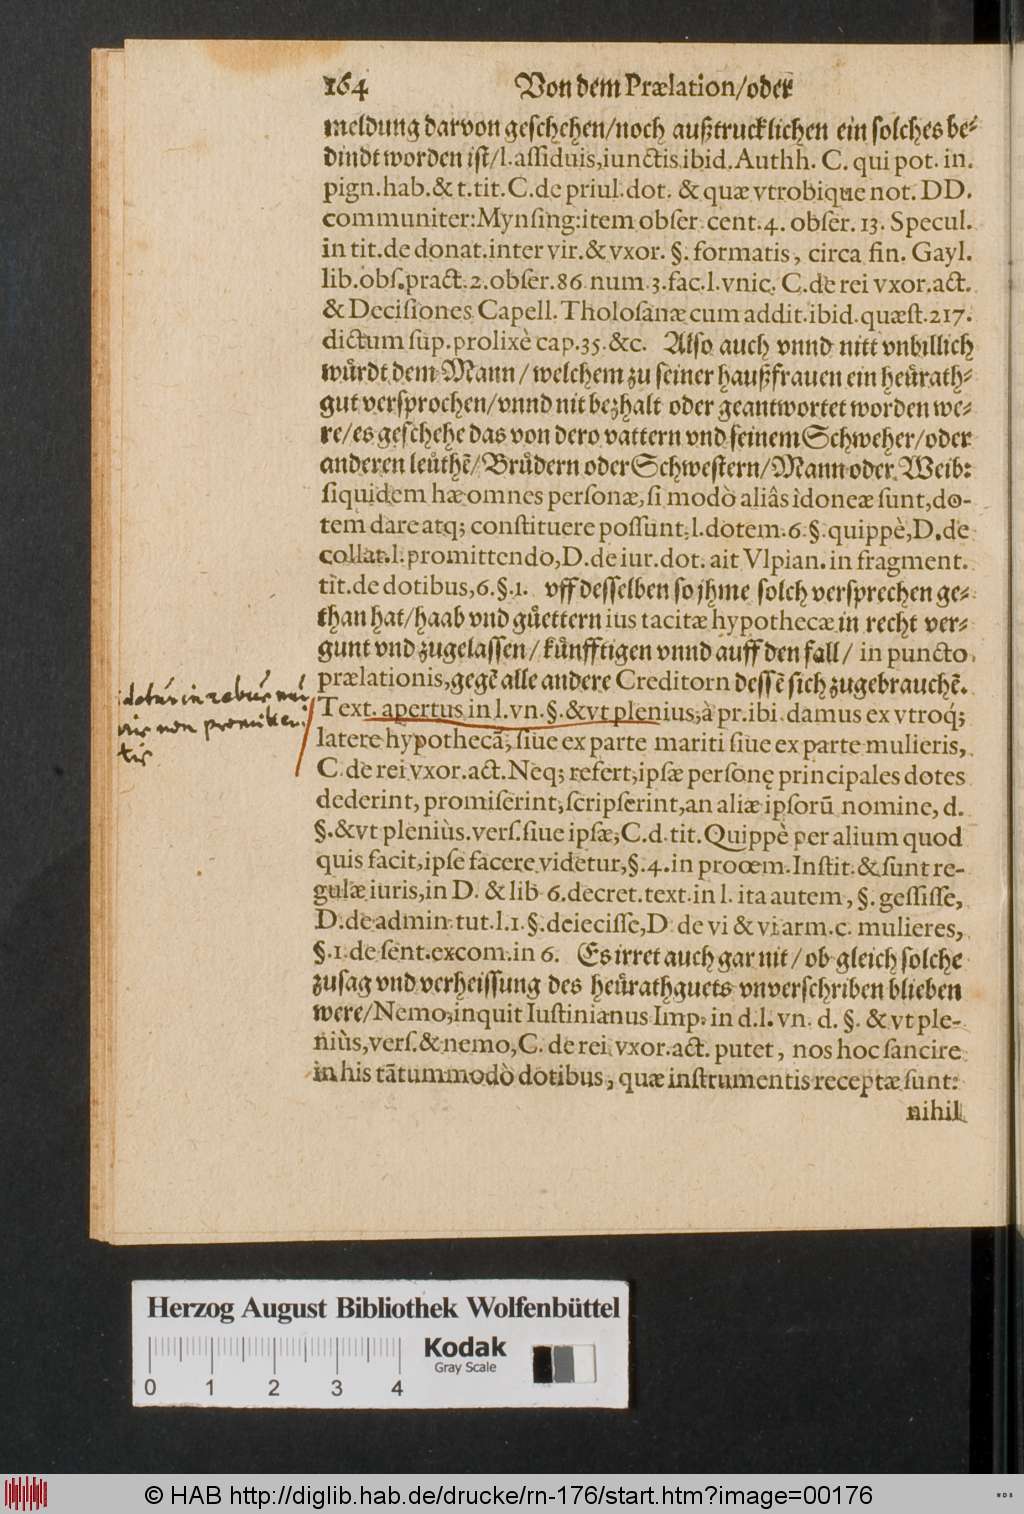 164 Von dem Prælation/oder
meldung darvon geschehen/noch außtrucklichen ein solches be-
dindt worden ist/l.assiduis,iunctis.ibid.Authh. C. qui pot. in.
pign.hab.& t.tit.C.de priul.dot. & quæ vtrobique not. DD.
communiter:Mynsing:item obser.cent.4. obser. 13. Specul.
in tit.de donat.inter vir.& vxor. §. formatis, circa fin. Gayl.
lib.obs.pract.2.obser.86.num.3.fac.l.vnic. C.de rei vxor.act.
& Decisiones Capell.Tholosanæ cum addit.ibid.quæst.217.
dictum sup.prolixè cap.35.&c. Also auch vnnd nitt vnbillich
wuͤrdt dem Mann/welchem zu seiner haußfrauen ein heuͤrath-
gut versprochen/vnnd nit bezhalt oder geantwortet worden we-
re/es geschehe das von dero vattern vnd seinem Schweher/oder
anderen leuͤthẽ/Bruͤdern oder Schwestern/Mann oder Weib:
siquidem hæ omnes personæ, si modò aliâs idoneæ sunt, do-
tem dare atq; constituere possunt, l.dotem.6.§.quippè, D.de
collat.l.promittendo, D.de iur.dot. ait Vlpian. in fragment.
tit.de dotibus,6.§.1. vff desselben so jhme solch versprechen ge-
than hat/haab vnd guͤettern ius tacitæ hypothecæ in recht ver-
gunt vnd zugelassen/kuͤnfftigen vnnd auff den fall/ in puncto
prælationis, gegẽ alle andere Creditorn dessẽ sich zugebrauchẽ.
Text. apertus in l.vn.§.&vt plenius,à pr.ibi.damus ex vtroq;
latere hypothecã, siue ex parte mariti siue ex parte mulieris,
C.de rei vxor.act. Neq; refert, ipsæ personę principales dotes
dederint, promiserint, scripserint, an aliæ ipsorũ nomine, d.
§.&vt pleniùs.vers.siue ipsæ, C.d.tit. Quippè per alium quod
quis facit, ipse facere videtur, §.4.in prooem.Instit.& sunt re-
gulæ iuris, in D. & lib 6.decret.text.in l. ita autem, §. gessisse,
D.de admin tut.l.1.§.deiecisse, D de vi & vi arm.c. mulieres,
§.1.de sent.excom.in 6. Es irret auch gar nit/ob gleich solche
zusag vnd verheissung des heuͤrathguets vnverschriben blieben
were/Nemo, inquit Iustinianus Imp. in d.l.vn. d. §. & vt ple-
niùs, vers.& nemo, C. de rei vxor.act. putet, nos hoc sancire
in his tãtummodò dotibus, quæ instrumentis receptæ sunt:
nihil
in rebus
non
Herzog August Bibliothek Wolfenbüttel
Kodak
Gray Scale
0 1 2 3 4
© HAB http://diglib.hab.de/drucke/rn-176/start.htm?image=00176